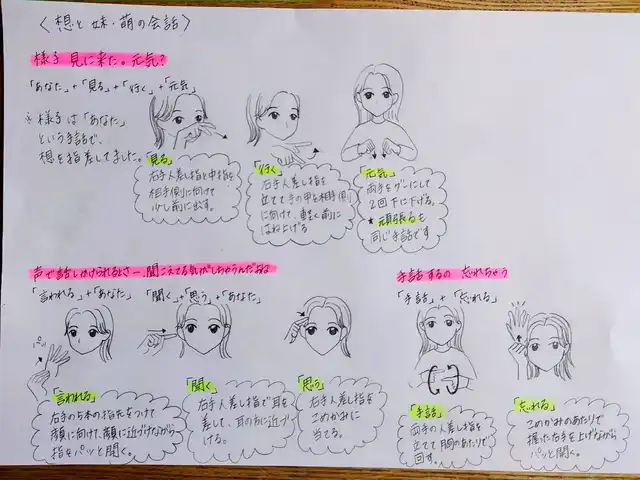 〈想と妹・萌の会話〉
様子 見に来た。元気?
「あなた」+「見る」+「行く」+「元気」
※様子は「あなた」
という手話で、
想を指差してました。
「見る」
右手人差し指と中指を
相手側に向けて
少し前に出す。
「行く」
右手人差し指を
立てて手の甲を相手側
に向けて、軽く前に
はね上げる
「元気」
両手をグーにして
2回下に下げる。
★頑張るも
同じ手話です
声で話しかけられるとさー、聞こえてる気がしちゃうんだよね
「言われる」+「あなた」 「聞く」+「思う」+「あなた」
パッ
「言われる」
右手の5本の指先をつけて
顔に向けて、顔に近づけながら
指をパッと開く。
「聞く」
右手人差し指で耳を
差して、耳の方に近づ
ける。
「思う」
右手人差し指を
こめかみに
当てる。
手話するの 忘れちゃう
「手話」+「忘れる」
「手話」
両手の人差し指を
立てて胸のあたりで
回す。
「忘れる」
こめかみのあたりで
握った右手を上げながら
パッと開く。